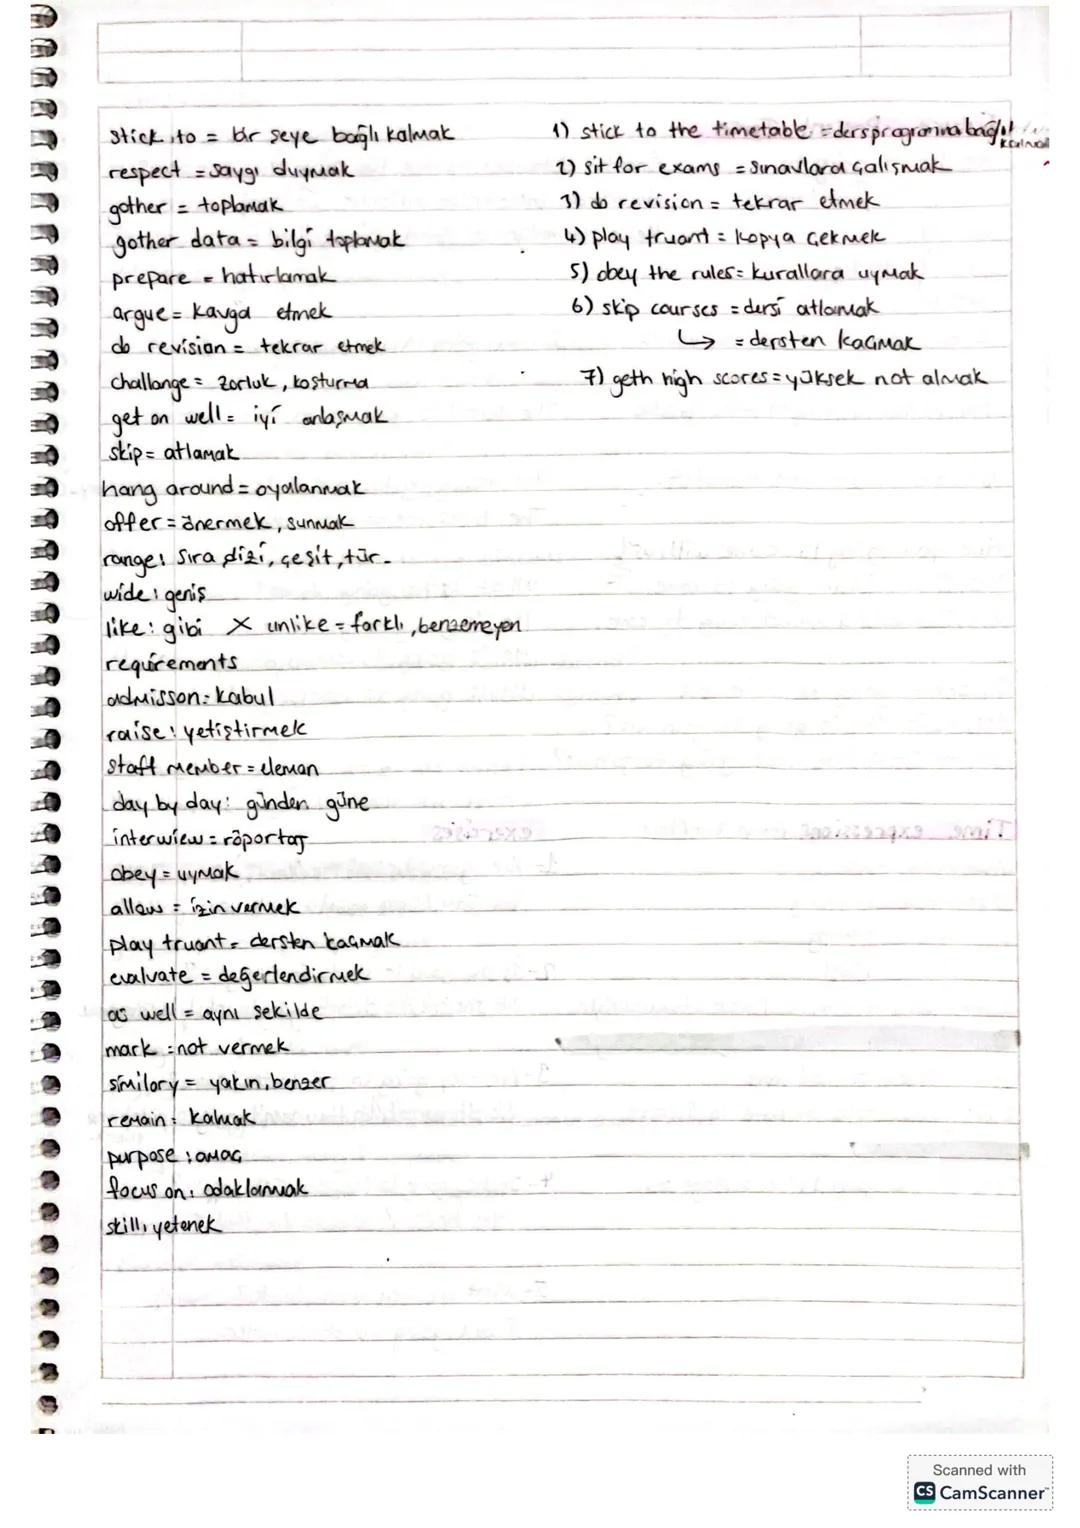 stick to = bir şeye bağlı kalmak
respect = saygı duymak
gather = toplamak
gather data = bilgi toplamak
prepare = hatırlamak
argue = kavga etmek
do revision = tekrar etmek
challange = zorluk, kosturma
get on well = iyi anlaşmak
skip = atlamak
hang around = oyalanmak
offer = önermek, sunmak
range: sıra dizi, çeşit, tür.
wide: geniş
like: gibi X unlike = farklı, benzemeyen
requirements
admisson: kabul
raise: yetiştirmek
staff member = eleman
day by day: günden güne
interwiew = röportaj
obey = uymak
allow = izin vermek
play truant = dersten kaçmak
evalvate = değerlendirmek
as well = aynı sekilde
mark = not vermek
similary = yakın, benzer
remain: kalmak
purpose: amaç
focus on: odaklanmak
skill: yetenek
1) stick to the timetable = ders programına bağlı kalmak
2) sit for exams = sınavlara çalışmak
3) do revision = tekrar etmek
4) play truant = kopya çekmek
5) obey the rules = kurallara uymak
6) skip courses = dersi atlamak
↳ = dersten kaçmak
7) geth high scores = yüksek not almak
Time expressions
exercises
Scanned with
CS CamScanner